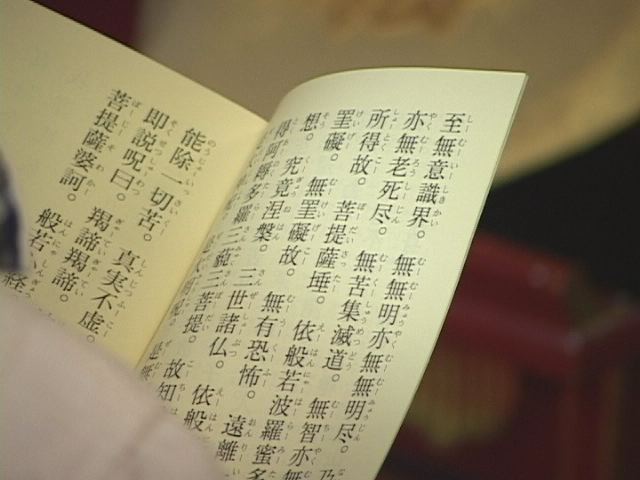 至無意識界。 無無明亦無無明尽。 乃
亦無老死尽。 無苦集滅道。 無智亦無
所得故。 菩提薩埵。 依般若波羅蜜多
罣礙。 無罣礙故。 無有恐怖。 遠離
想。 究竟涅槃。 三世諸仏。 依般
得阿耨多羅三藐三菩提。 故知
大明呪。 是無
能除一切苦。 真実不虚。
即説呪曰。 羯諦羯諦。
菩提薩婆訶。 般若
経